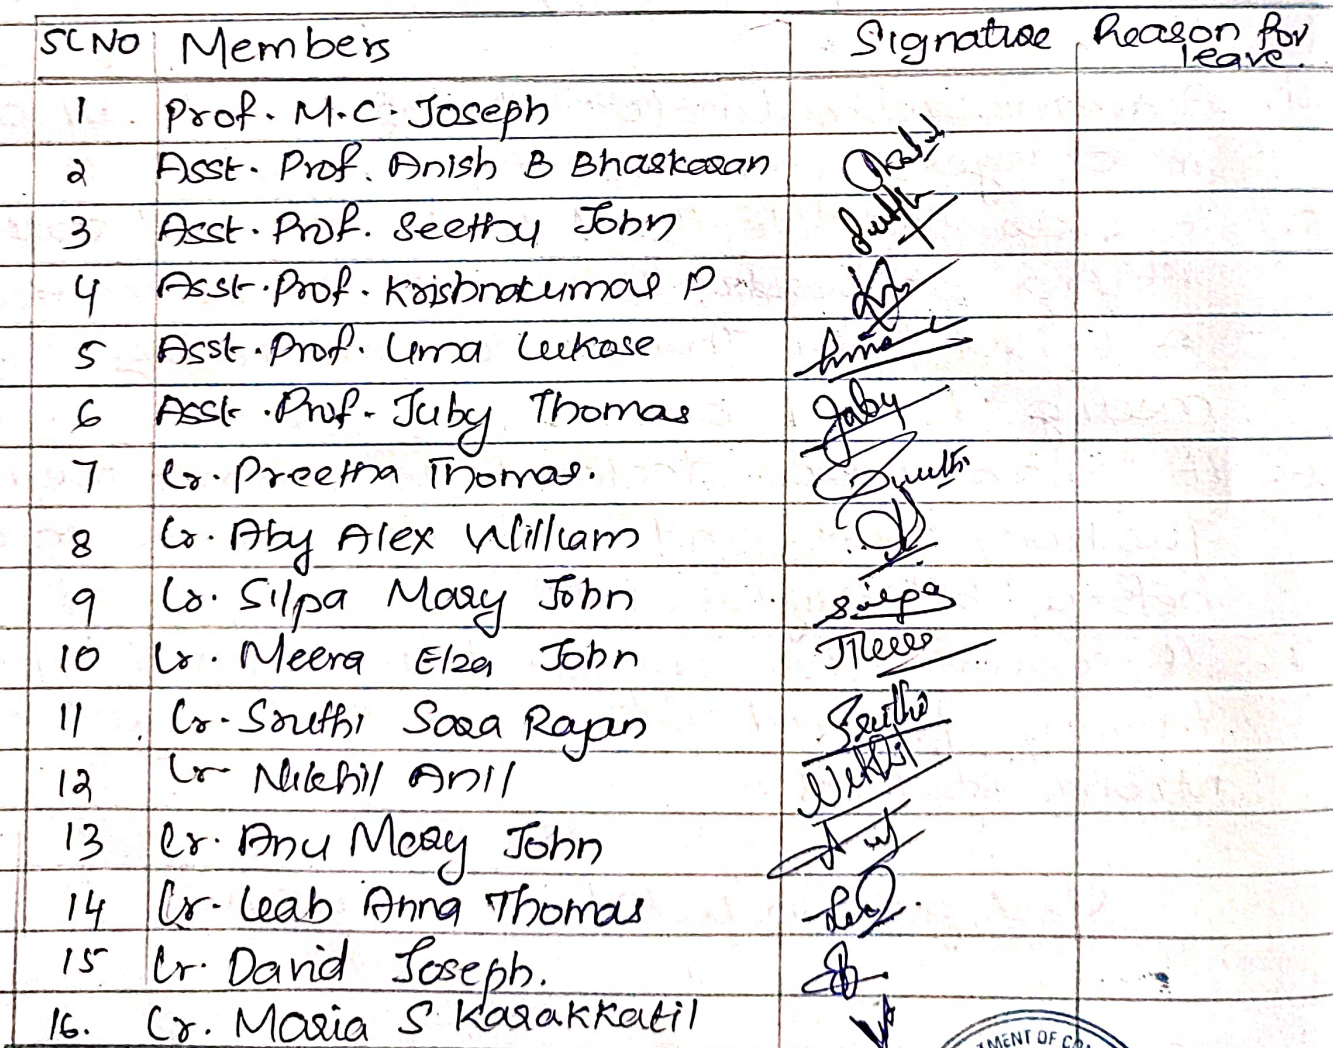 SL NO Members Signature Reason for leave.
1 Prof. M.C. Joseph
2 Asst. Prof. Anish B Bhaskaran
3 Asst. Prof. Seethu John
4 Asst. Prof. Krishnakumar P
5 Asst. Prof. Uma Lukose Uma
6 Asst. Prof. Juby Thomas Juby
7 Lr. Preetha Thomas.
8 Lr. Aby Alex William
9 Lr. Silpa Mary John Silpa
10 Lr. Meera Elza John Meera
11 Lr. Sruthi Sara Rajan Sruthi
12 Lr Nikhil Anil Nikhil
13 Lr. Anu Mary John
14 Lr. Leah Anna Thomas
15 Lr. David Joseph.
16. Lr. Maria S Karakkatil
MENT OF